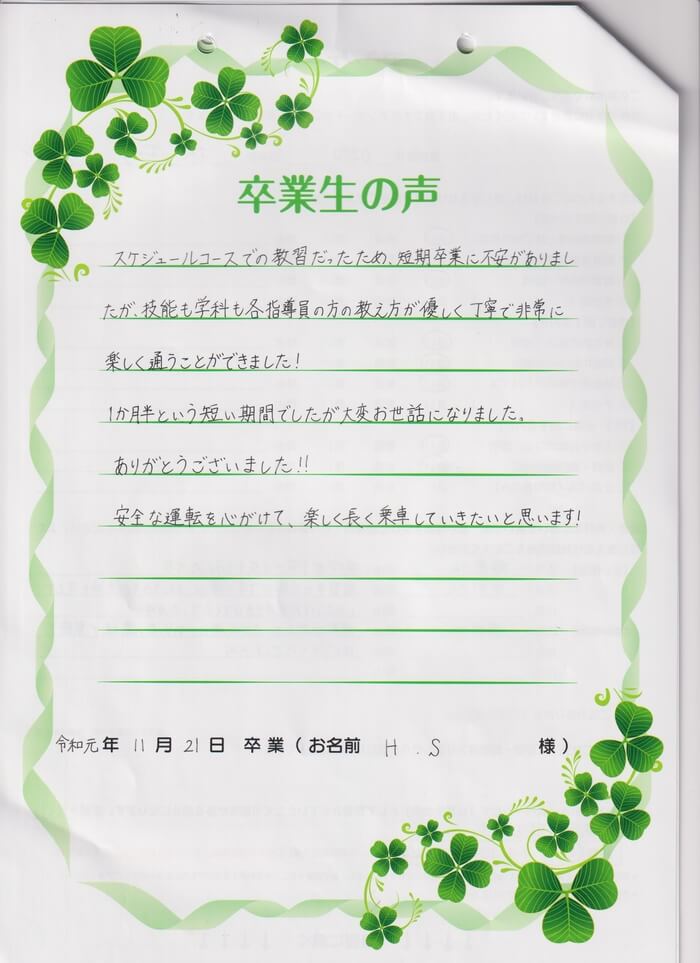 卒業生の声
スケジュールコースでの教習だったため、短期卒業に不安がありまし
たが、技能も学科も各指導員の方の教え方が優しく丁寧で非常に
楽しく通うことができました！
1か月半という短い期間でしたが大変お世話になりました。
ありがとうございました！！
安全な運転を心がけて、楽しく長く乗車していきたいと思います！
令和元年 11月 21日 卒業（お名前 H.S 様）